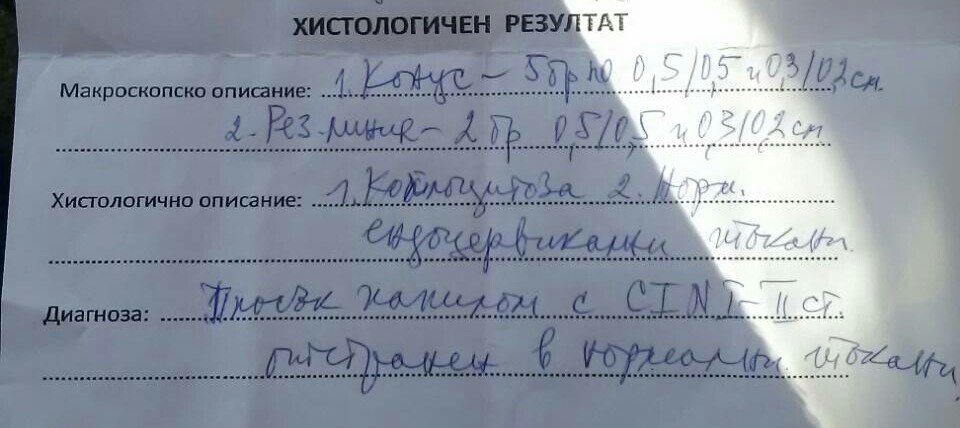 ХИСТОЛОГИЧЕН РЕЗУЛТАТ
Макроскопско описание: 1. Конус – 5 бр по 0,5/0,5 и 0,3/0,2 см.
2. Рез. линия – 2 бр 0,5/0,5 и 0,3/0,2 см
Хистологично описание: 1. Койлоцитоза 2. Норм.
ендоцервикални тъкани.
Диагноза: Плосък папилом с CIN I–II ст.
отстранен в нормални тъкани